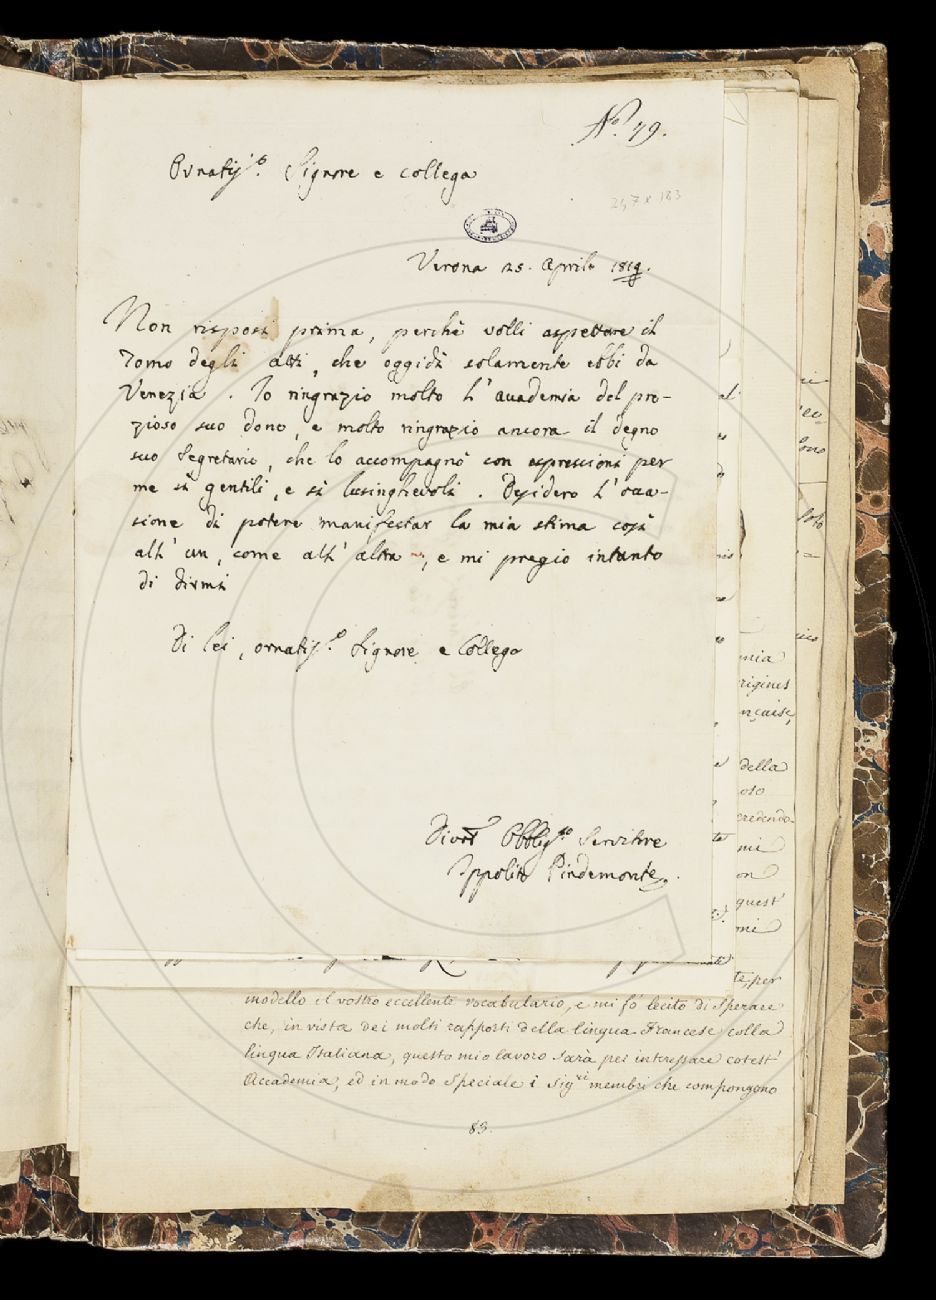 N.° 79.
Ornatis.° Signore e collega
247 x 183
Verona 25. Aprile 1819.
Non risposi prima, perchè volli aspettare il
Tomo degli Atti, che oggidì solamente ebbi da
Venezia. Io ringrazio molto l'accademia del pre-
zioso suo dono, e molto ringrazio ancora il degno
suo Segretario, che lo accompagnò con espressioni per
me sì gentili, e sì lusinghevoli. Desidero l'occa-
sione di potere manifestar la mia stima così
all'un, come all'altra, e mi pregio intanto
di dirmi
Di lei, ornatis.° Signore e Collega
Obblig.mo Servitore
Ippolito Pindemonte.
modello il vostro eccellente vocabulario, e mi fò lecito di Sperare
che, in vista dei molti rapporti della lingua Francese colla
lingua Italiana, questo mio lavoro sarà per interessare cotest'
Accademia, ed in modo speciale i Sig.ri membri che compongono
83.
mia
rigines
nçaise,
della
oso
credendo
mi
on
quest'
mi
te, per